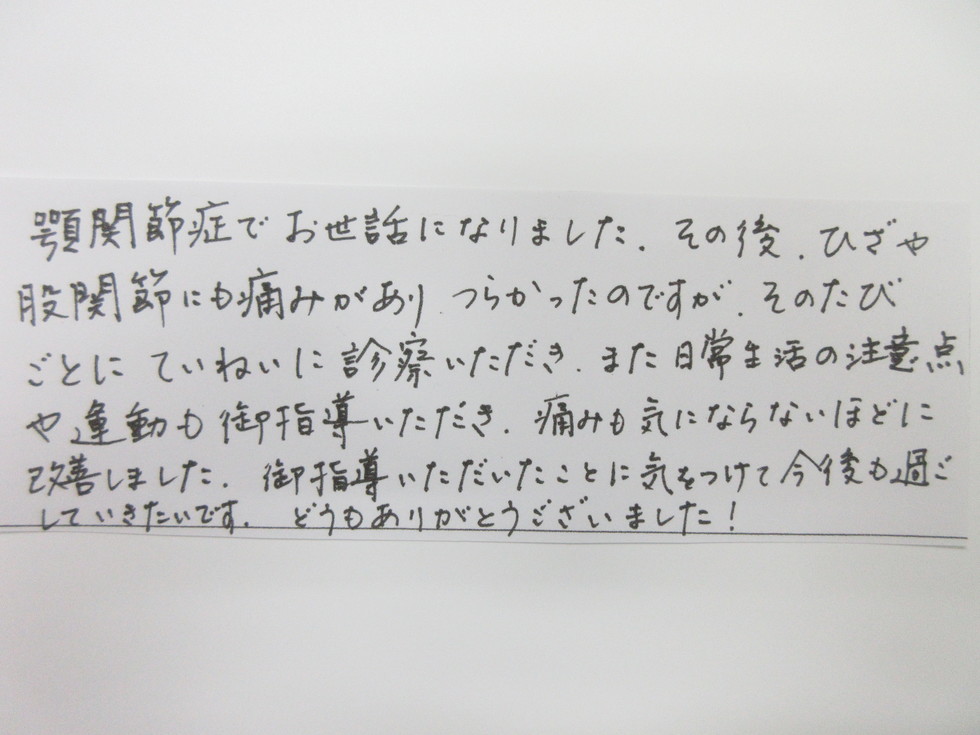 顎関節症でお世話になりました。その後、ひざや
股関節にも痛みがあり つらかったのですが、そのたび
ごとに ていねいに診察いただき、また日常生活の注意点
や運動も御指導いただき、痛みも気にならないほどに
改善しました。御指導いただいたことに気をつけて今後も過ご
していきたいです。どうもありがとうございました！